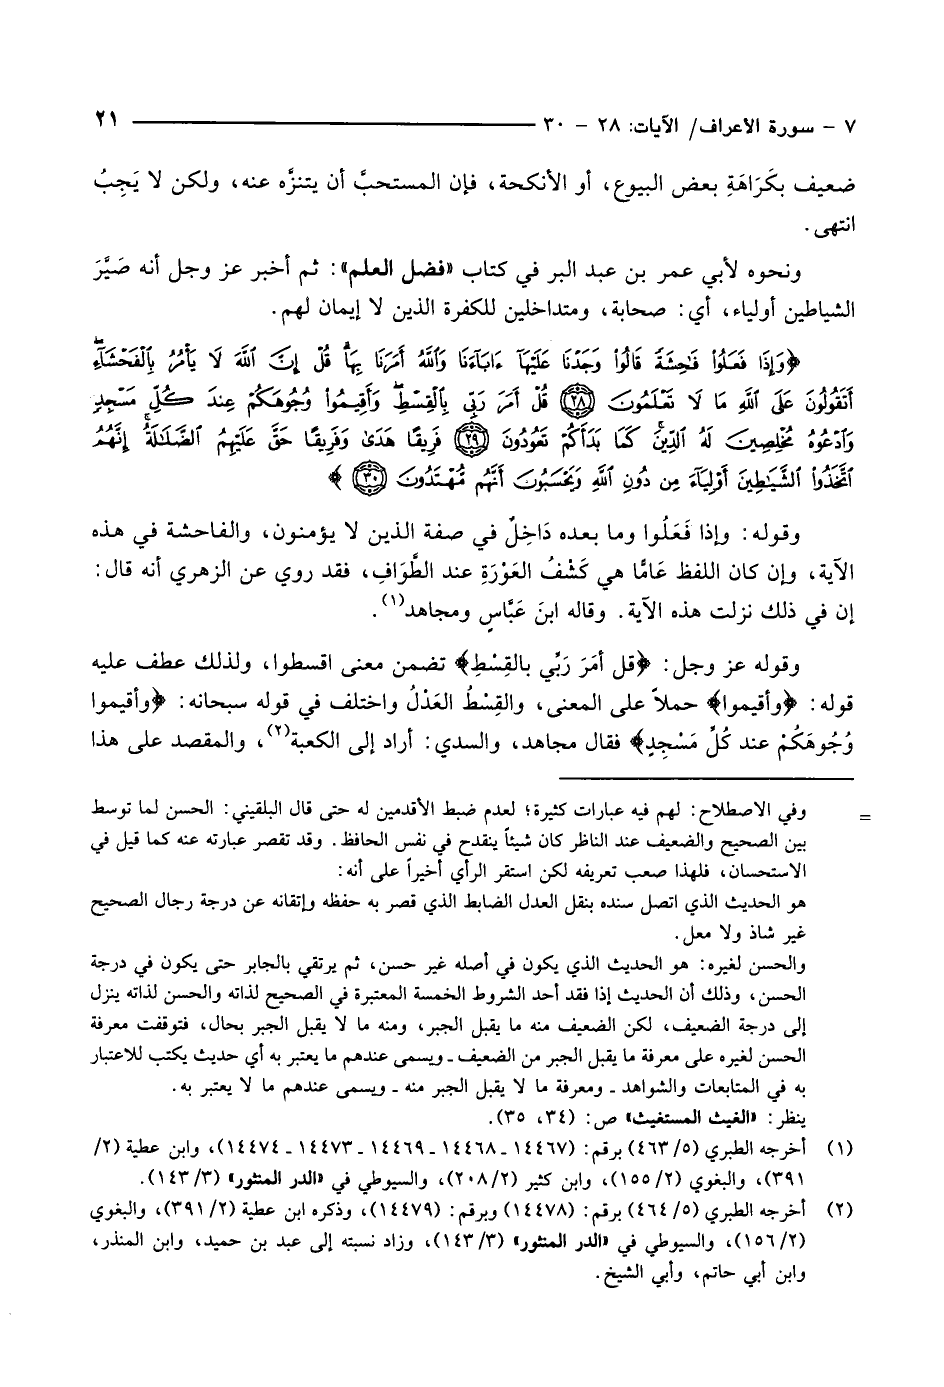 ٧ - سورة الأعراف/ الآيات: ٢٨ - ٣٠ ٢١
ضعيف بكَرَاهَةِ بعض البيوع، أو الأنكحة، فإن المستحبَّ أن يتنزَّه عنه، ولكن لا يَجِبُ
انتهى.
ونحوه لأبي عمر بن عبد البر في كتاب «فضل العلم»: ثم أخبر عز وجل أنه صَيَّرَ
الشياطين أولياء، أي: صحابة، ومتداخلين للكفرة الذين لا إيمان لهم.
﴿وَإِذَا فَعَلُوا۟ فَـٰحِشَةً قَالُوا۟ وَجَدْنَا عَلَيْهَآ ءَابَآءَنَا وَٱللَّهُ أَمَرَنَا بِهَا ۗ قُلْ إِنَّ ٱللَّهَ لَا يَأْمُرُ بِٱلْفَحْشَآءِ ۖ
أَتَقُولُونَ عَلَى ٱللَّهِ مَا لَا تَعْلَمُونَ ٢٨ قُلْ أَمَرَ رَبِّى بِٱلْقِسْطِ ۖ وَأَقِيمُوا۟ وُجُوهَكُمْ عِندَ كُلِّ مَسْجِدٍ
وَٱدْعُوهُ مُخْلِصِينَ لَهُ ٱلدِّينَ ۚ كَمَا بَدَأَكُمْ تَعُودُونَ ٢٩ فَرِيقًا هَدَىٰ وَفَرِيقًا حَقَّ عَلَيْهِمُ ٱلضَّلَـٰلَةُ ۗ إِنَّهُمُ
ٱتَّخَذُوا۟ ٱلشَّيَـٰطِينَ أَوْلِيَآءَ مِن دُونِ ٱللَّهِ وَيَحْسَبُونَ أَنَّهُم مُّهْتَدُونَ ٣٠﴾
وقوله: وإذا فَعَلُوا وما بعده دَاخِلٌ في صفة الذين لا يؤمنون، والفاحشة في هذه
الآية، وإن كان اللفظ عَامًّا هي كَشْفُ العَوْرَةِ عند الطَّوَافِ، فقد روي عن الزهري أنه قال:
إن في ذلك نزلت هذه الآية. وقاله ابنَ عَبَّاسٍ ومجاهد(١).
وقوله عز وجل: ﴿قل أمَرَ رَبِّي بالقِسْطِ﴾ تضمن معنى اقسطوا، ولذلك عطف عليه
قوله: ﴿وأقيموا﴾ حملاً على المعنى، والقِسْطُ العَدْلُ واختلف في قوله سبحانه: ﴿وأقيموا
وُجُوهَكُمْ عند كُلِّ مَسْجِدٍ﴾ فقال مجاهد، والسدي: أراد إلى الكعبة(٢)، والمقصد على هذا
= وفي الاصطلاح: لهم فيه عبارات كثيرة؛ لعدم ضبط الأقدمين له حتى قال البلقيني: الحسن لما توسط
بين الصحيح والضعيف عند الناظر كان شيئاً ينقدح في نفس الحافظ. وقد تقصر عبارته عنه كما قيل في
الاستحسان، فلهذا صعب تعريفه لكن استقر الرأي أخيراً على أنه:
هو الحديث الذي اتصل سنده بنقل العدل الضابط الذي قصر به حفظه وإتقانه عن درجة رجال الصحيح
غير شاذ ولا معل.
والحسن لغيره: هو الحديث الذي يكون في أصله غير حسن، ثم يرتقي بالجابر حتى يكون في درجة
الحسن، وذلك أن الحديث إذا فقد أحد الشروط الخمسة المعتبرة في الصحيح لذاته والحسن لذاته ينزل
إلى درجة الضعيف، لكن الضعيف منه ما يقبل الجبر، ومنه ما لا يقبل الجبر بحال، فتوقفت معرفة
الحسن لغيره على معرفة ما يقبل الجبر من الضعيف ـ ويسمى عندهم ما يعتبر به أي حديث يكتب للاعتبار
به في المتابعات والشواهد ـ ومعرفة ما لا يقبل الجبر منه ـ ويسمى عندهم ما لا يعتبر به.
ينظر: «الغيث المستغيث» ص: (٣٤، ٣٥).
(١) أخرجه الطبري (٥/ ٤٦٣) برقم: (١٤٤٦٧ ـ ١٤٤٦٨ ـ ١٤٤٦٩ ـ ١٤٤٧٣ ـ ١٤٤٧٤)، وابن عطية (٢/
٣٩١)، والبغوي (٢/ ١٥٥)، وابن كثير (٢/ ٢٠٨)، والسيوطي في «الدر المنثور» (٣/ ١٤٣).
(٢) أخرجه الطبري (٥/ ٤٦٤) برقم: (١٤٤٧٨) وبرقم: (١٤٤٧٩)، وذكره ابن عطية (٢/ ٣٩١)، والبغوي
(٢/ ١٥٦)، والسيوطي في «الدر المنثور» (٣/ ١٤٣)، وزاد نسبته إلى عبد بن حميد، وابن المنذر،
وابن أبي حاتم، وأبي الشيخ.